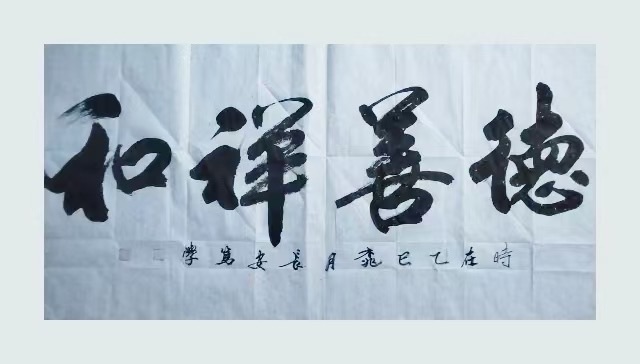 德善祥和
時在乙巳桃月長安篤學